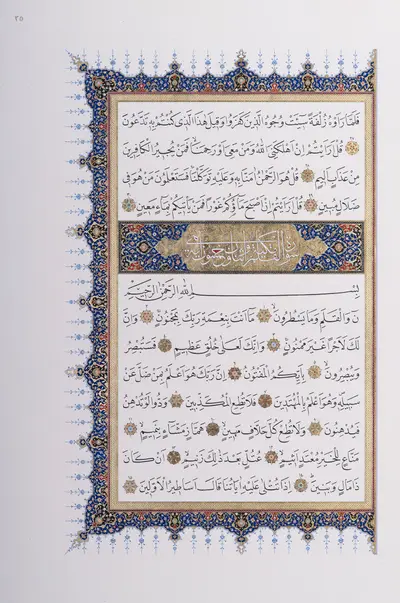 ٣٥
فَلَمَّا رَاَوْهُ زُلْفَةً سٓيـَٔتْ وُجُوهُ الَّذٖينَ كَفَرُوا وَقٖيلَ هٰذَا الَّذٖى كُنْتُمْ بِهٖ تَدَّعُونَ
قُلْ اَرَاَيْتُمْ اِنْ اَهْلَكَنِىَ اللّٰهُ وَمَنْ مَعِىَ اَوْ رَحِمَنَا فَمَنْ يُجٖيرُ الْكَافِرٖينَ
مِنْ عَذَابٍ اَلٖيمٍ قُلْ هُوَ الرَّحْمٰنُ اٰمَنَّا بِهٖ وَعَلَيْهِ تَوَكَّلْنَا فَسَتَعْلَمُونَ مَنْ هُوَ فٖى
ضَلَالٍ مُبٖينٍ قُلْ اَرَاَيْتُمْ اِنْ اَصْبَحَ مَٓاؤُ۬كُمْ غَوْرًا فَمَنْ يَاْتٖيكُمْ بِمَٓاءٍ مَعٖينٍ
بِسْمِ اللّٰهِ الرَّحْمٰنِ الرَّحٖيمِ
نٓ وَالْقَلَمِ وَمَا يَسْطُرُونَ مَٓا اَنْتَ بِنِعْمَةِ رَبِّكَ بِمَجْنُونٍ وَاِنَّ
لَكَ لَاَجْرًا غَيْرَ مَمْنُونٍ وَاِنَّكَ لَعَلٰى خُلُقٍ عَظٖيمٍ فَسَتُبْصِرُ
وَيُبْصِرُونَ بِاَيِّكُمُ الْمَفْتُونُ اِنَّ رَبَّكَ هُوَ اَعْلَمُ بِمَنْ ضَلَّ عَنْ
سَبٖيلِهٖ وَهُوَ اَعْلَمُ بِالْمُهْتَدٖينَ فَلَا تُطِعِ الْمُكَذِّبٖينَ وَدُّوا لَوْ تُدْهِنُ
فَيُدْهِنُونَ وَلَا تُطِعْ كُلَّ حَلَّافٍ مَهٖينٍ هَمَّازٍ مَشَّٓاءٍ بِنَمٖيمٍ
مَنَّاعٍ لِلْخَيْرِ مُعْتَدٍ اَثٖيمٍ عُتُلٍّ بَعْدَ ذٰلِكَ زَنٖيمٍ اَنْ كَانَ
ذَا مَالٍ وَبَنٖينَ اِذَا تُتْلٰى عَلَيْهِ اٰيَاتُنَا قَالَ اَسَاطٖيرُ الْاَوَّلٖينَ